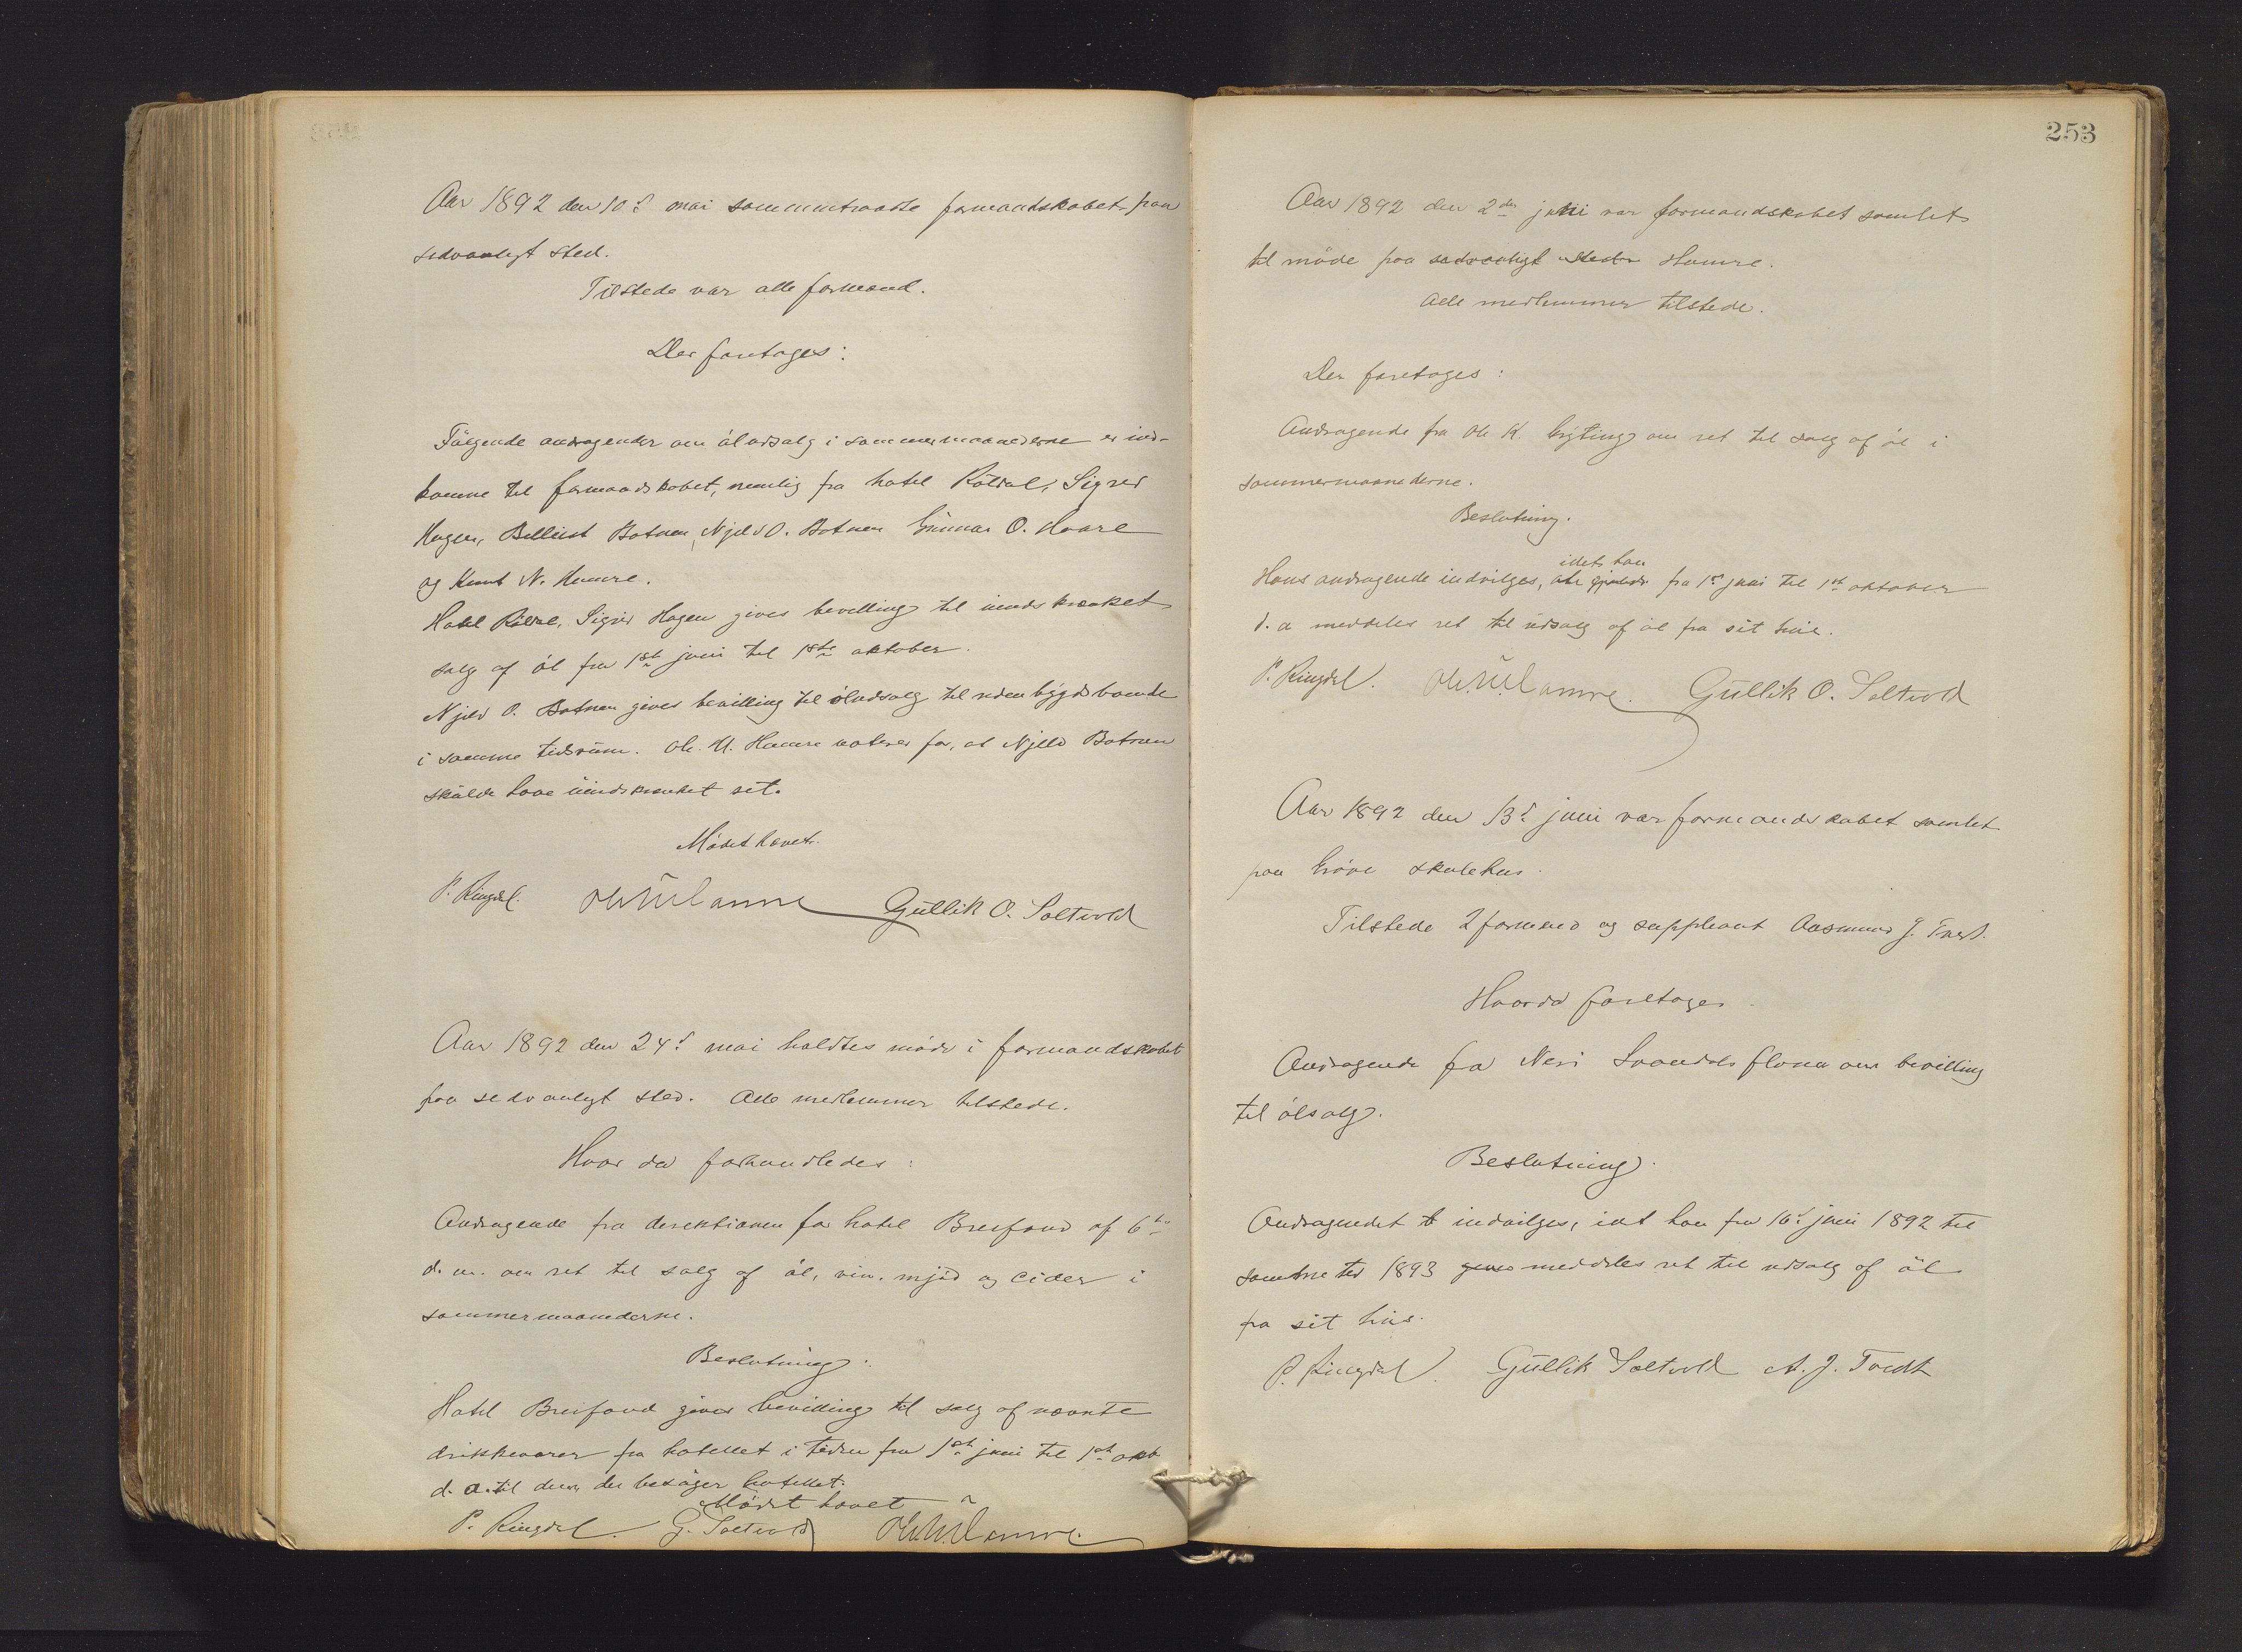 Aar 1892 den 10d mai sammentraadte formandskabet paa
sedvanligt sted.
Tilstede var alle formænd.
Der foretages:
Følgende andragender om øludsalg i sommermaanederne er ind-
komne til formandskabet, nemlig fra hotel Røldal, Sigrid
Hagen, Botnen, Njeld O. Botnen Gunnar O. Haare
og Knut N. Hamre.
Hotel Røldal, Sigrid Hagen gives bevilling til uindskrænket
salg af øl fra 1ste juni til 1ste oktober.
Njeld O. Botnen gives bevilling til øludsalg til udenbygdsboende
i samme tidsrum. Ole N. Hamre voterer for, at Njeld Botnen
skulde have uindskrænket ret.
Mødet hævet.
P. Ringdal. Ole N. Hamre Gullik O. Saltvold
Aar 1892 den 24d mai holdtes møde i formandskabet
paa sedvanligt sted. Alle medlemmer tilstede.
Hvor da forhandledes:
Andragende fra derektionen for hotel Breifond af 6te
d. m. om ret til salg af øl, vin, mjød og cider i
sommermaanederne.
Beslutning:
Hotel Breifond gives bevilling til salg af nævnte
drikkevarer fra hotellet i tiden fra 1ste juni til 1ste okt
d. a. til dem, der besøger hotellet.
Mødet hævet
P. Ringdal. G. Saltvold Ole N. Hamre.
253
Aar 1892 den 2den juni var formandskabet samlet
til møde paa sedvanligt sted Hamre.
Alle medlemmer tilstede.
Der foretages:
Andragende fra Ole K. Gryting om ret til salg af øl i
sommermaanederne.
Beslutning.
idet han
Hans andragende indvilges, fra 1ste juni til 1ste oktober
d. a meddeles ret til udsalg af øl fra sit hus.
P. Ringdal. Ole N. Hamre. Gullik O. Saltvold
Aar 1892 den 13d juni var formandskabet samlet
paa Grøve skolehus.
Tilstede 2 formænd og suppleant Aasmund J. Tvedt.
Hvorda foretages.
Andragende fra Neri Svandalsflona om bevilling
til ølsalg.
Beslutning.
Andragendet indvilges, idet han fra 16d juni 1892 til
samme tid 1893 gives meddeles ret til udsalg af øl
fra sit hus.
P. Ringdal. Gullik Saltvold A. J. Tvedt